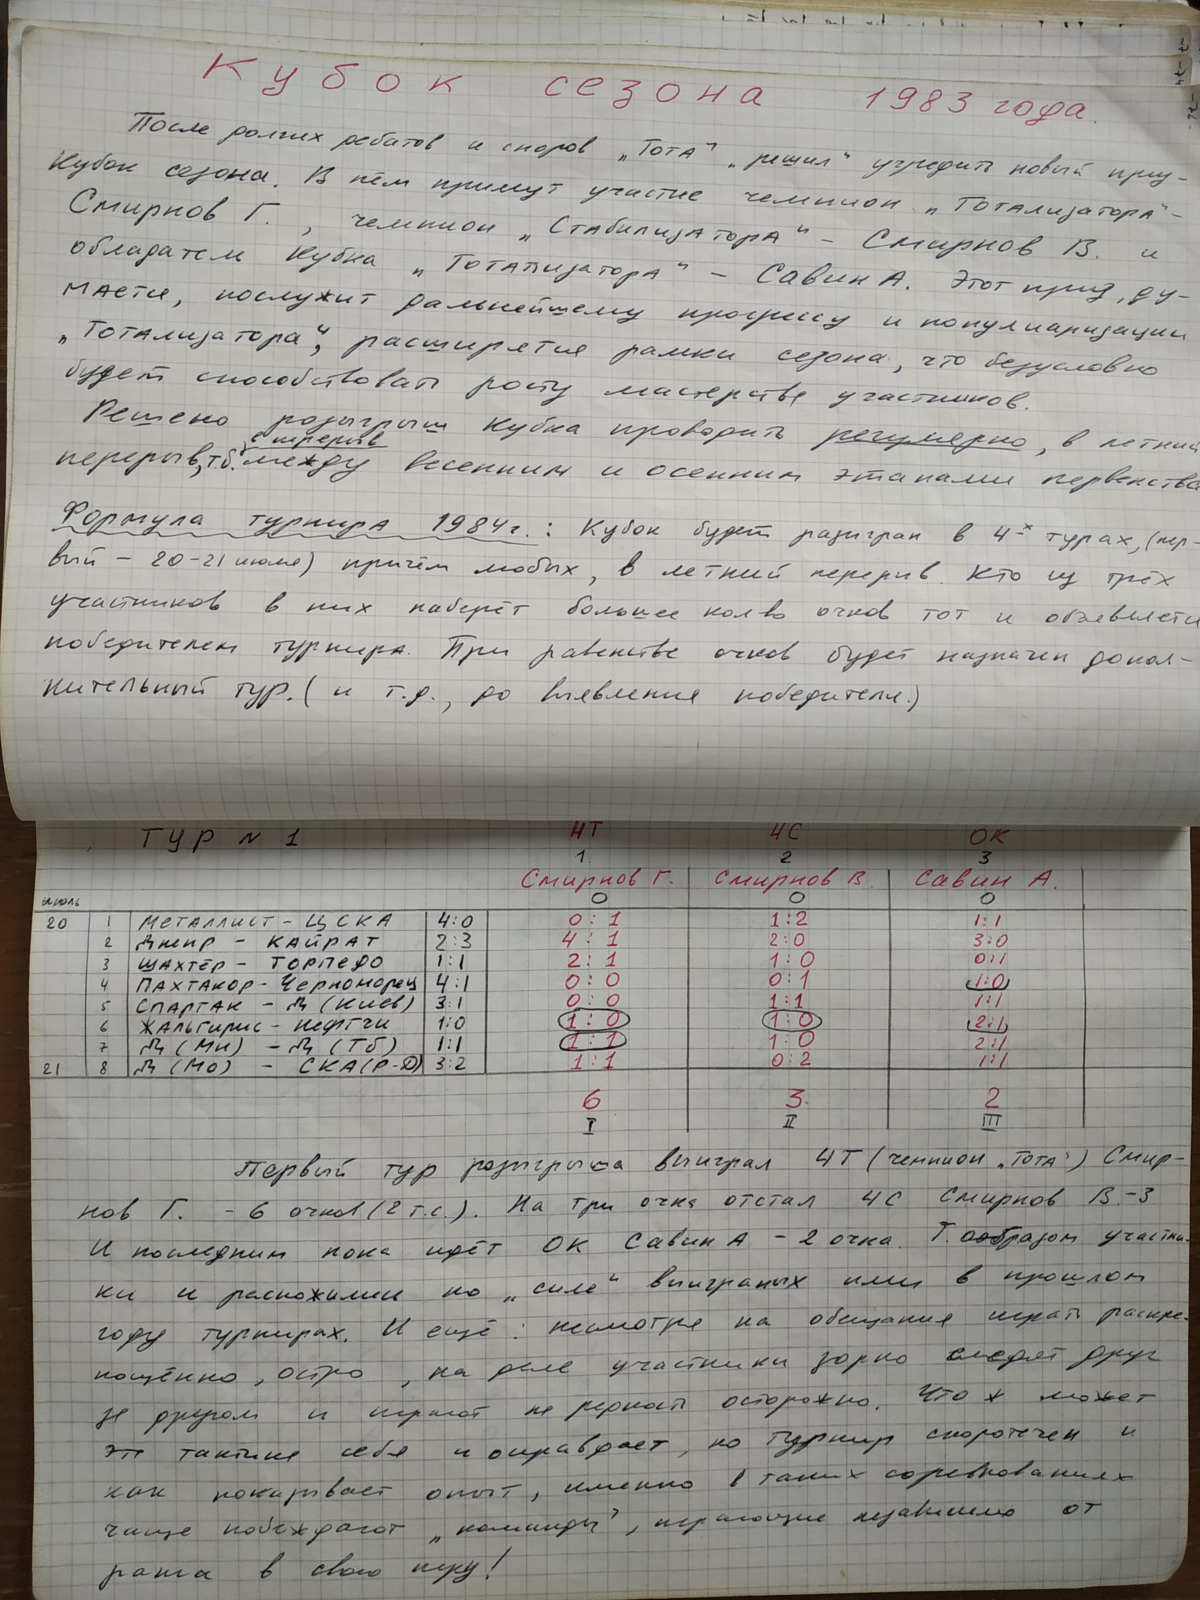 Кубок сезона 1983 года.
После долгих дебатов и споров „Тота" „решил" учредить новый приз –
Кубок сезона. В нём примут участие чемпион „Тотализатора" –
Смирнов Г., чемпион „Стабилизатора" – Смирнов В. и
обладатель Кубка „Тотализатора" – Савин А. Этот приз, ду-
мается, послужит дальнейшему прогрессу и популяризации
„Тотализатора", расширятся рамки сезона, что безусловно
будет способствовать росту мастерства участников.
Решено розыгрыш Кубка проводить регулярно, в летний
в перерыв
перерыв, т.б. между весенним и осенним этапами первенства
Формула турнира 1984 г.: Кубок будет разигран в 4-х турах, (пер-
вый – 20-21 июля) причём любых, в летний перерыв. Кто из трёх
участников в них наберёт большее кол-во очков тот и объявляется
победителем турнира. При равенстве очков будет назначен допол-
нительный тур. (и т.д., до выявления победителя.)
ТУР № 1 ЧТ ЧС ОК
1 2 3
Смирнов Г. Смирнов В. Савин А.
июль 0 0 0
20 1 Металлист – ЦСКА 4:0 0:1 1:2 1:1
2 Днепр – Кайрат 2:3 4:1 2:0 3:0
3 Шахтёр – Торпедо 1:1 2:1 1:0 0:1
4 Пахтакор – Черноморец 4:1 0:0 0:1 1:0
5 Спартак – Д (Киев) 3:1 0:0 1:1 1:1
6 Жальгирис – Нефтчи 1:0 1:0 1:0 2:1
7 Д (Мн) – Д (Тб) 1:1 1:1 1:0 2:1
21 8 Д (Мо) – СКА (Р-Д) 3:2 1:1 0:2 1:1
6 3 2
I II III
Первый тур розыгрыша выиграл ЧТ (чемпион „Тота") Смир-
нов Г. – 6 очков (2 т.с.). На три очка отстал ЧС Смирнов В. – 3
И последним пока идёт ОК Савин А – 2 очка. Т. образом участни-
ки и расположились по „силе" выиграных ими в прошлом
году турнирах. И ещё: несмотря на обещания играть раскре-
пощённо, остро, на деле участники зорко следят друг
за другом и играют не редкость осторожно. Что ж может
эта тактика себя и оправдает, но турнир скоротечен и
как показывает опыт, именно в таких соревнованиях
чаще побеждают „команды", играющие независимо от
ранга в свою игру!